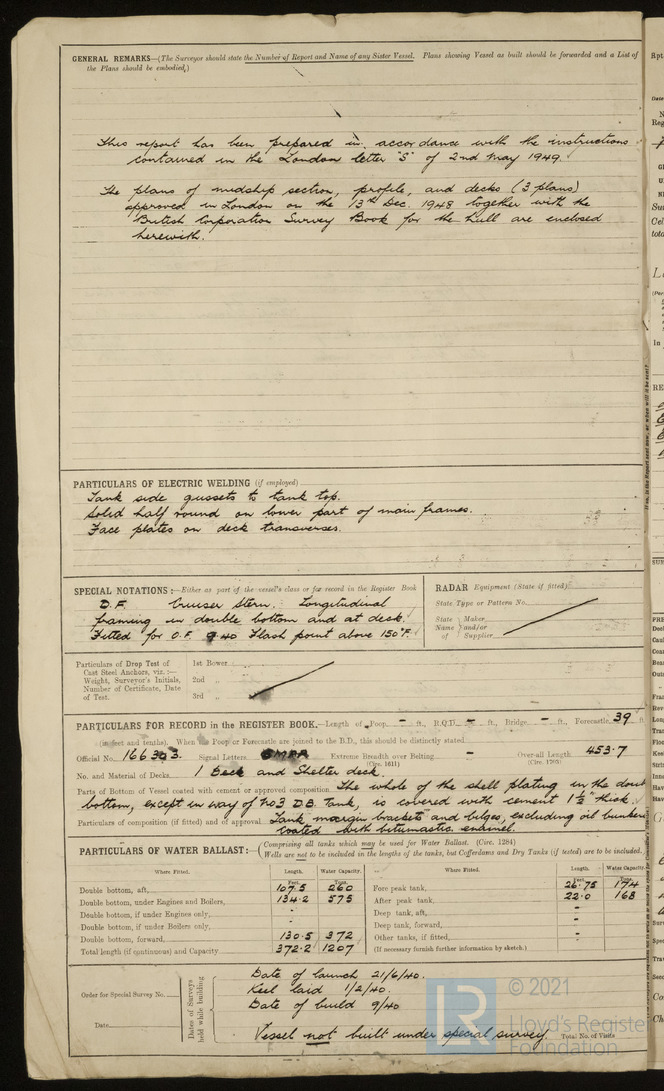 GENERAL REMARKS—(The Surveyor should state the Number of Report and Name of any Sister Vessel. Plans showing Vessel as built should be forwarded and a List of
the Plans should be embodied.)
This report has been prepared in accordance with the instructions
contained in the London letter "S" of 2nd May 1949.
The plans of midship section, profile, and decks (3 plans)
approved in London on the 13th Dec. 1948 together with the
British Corporation Survey Book for the hull are enclosed
herewith.
PARTICULARS OF ELECTRIC WELDING (if employed)
Tank side gussets to tank top.
Solid half round on lower part of main frames.
Face plates on deck transverses.
SPECIAL NOTATIONS:—Either as part of the vessel's class or for record in the Register Book
D.F. Cruiser Stern. Longitudinal
framing in double bottom and at deck.
Fitted for O.F. 9.40 Flash point above 150°F.
RADAR Equipment (State if fitted)
State Type or Pattern No.
State Name of Maker and/or Supplier
Particulars of Drop Test of
Cast Steel Anchors, viz.:—
Weight, Surveyor's Initials,
Number of Certificate, Date
of Test.
1st Bower
2nd „
3rd „
PARTICULARS FOR RECORD in the REGISTER BOOK.—Length of Poop, - ft., R.Q.D. - ft., Bridge - ft., Forecastle 39 ft
(in feet and tenths). When Poop or Forecastle are joined to the B.D., this should be distinctly stated
Official No. 166303. Signal Letters Extreme Breadth over Belting - Over-all Length 453.7
(Circ. 1611) (Circ. 1703)
No. and Material of Decks 1 Deck and Shelter deck.
Parts of Bottom of Vessel coated with cement or approved composition The whole of the shell plating in the doub
bottom, except in way of No3 D.B. Tank, is covered with cement 1½" thick.
Particulars of composition (if fitted) and of approval Tank margin brackets and bilges, excluding oil bunkers
coated with bitumastic enamel.
PARTICULARS OF WATER BALLAST:—(Comprising all tanks which may be used for Water Ballast. (Circ. 1284)
Wells are not to be included in the lengths of the tanks, but Cofferdams and Dry Tanks (if tested) are to be included.
Where Fitted. Length. Water Capacity. Where Fitted. Length. Water Capacity.
Feet. Tons. Feet. Tons.
Double bottom, aft, 107.5 260 Fore peak tank, 26.75 174
Double bottom, under Engines and Boilers, 134.2 575 After peak tank, 22.0 168
Double bottom, if under Engines only, - Deep tank, aft, -
Double bottom, if under Boilers only, - Deep tank, forward, -
Double bottom, forward, 130.5 372 Other tanks, if fitted, -
Total length (if continuous) and Capacity 372.2 1207 (If necessary furnish further information by sketch.)
Order for Special Survey No.
Date
Dates of Surveys held while building
Date of launch 21/6/40.
Keel laid 1/2/40.
Date of build 9/40
Vessel not built under special survey. Total No. of Visits
© 2021
LR
Lloyd's Registe
Foundation